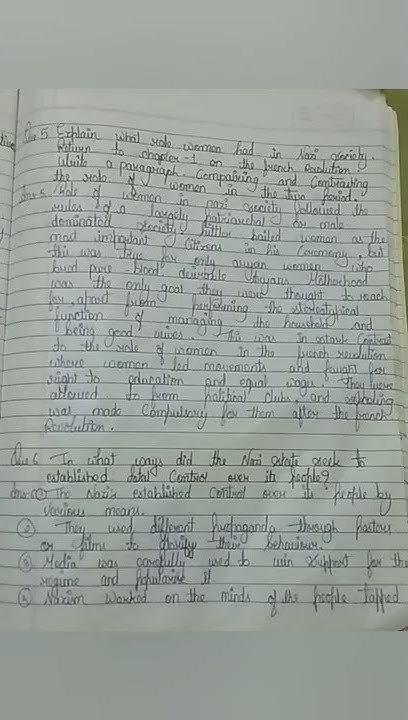 Que 5 Explain what role women had in Nazi society.
Return to chapter-1 on the french Revolution
Write a paragraph Compairing and Contrasting
the role of women in the two Period.
Ans-5 Role of women in nazi society followed the
rules of a largely patriarchal or male
dominated society Hitler hailed women as the
most important Citizens in his Ceremony, but
this was true for only aryan women who
bred pure-blood desirable Aryans Motherhood
was the only goal they were thought to reach
for, apart from performing the stereotypical
function of managing the household and
being good wives. This was in stark Contrast
to the role of women in the french revolution
where women led movements and fought for
right to education and equal wages. They were
allowed to from political clubs, and schooling
was made Compulsory for them after the french
Revolution.
Que 6 In what ways did the Nazi state seek to
established total Control over its people?
Ans- ① The Nazi's established control over its people by
various means.
② They used different propaganda through posters
or films to glorify their behaviour.
③ Media was carefully used to win support for the
regime and popularise it.
④ Nazism worked on the minds of the people tapped